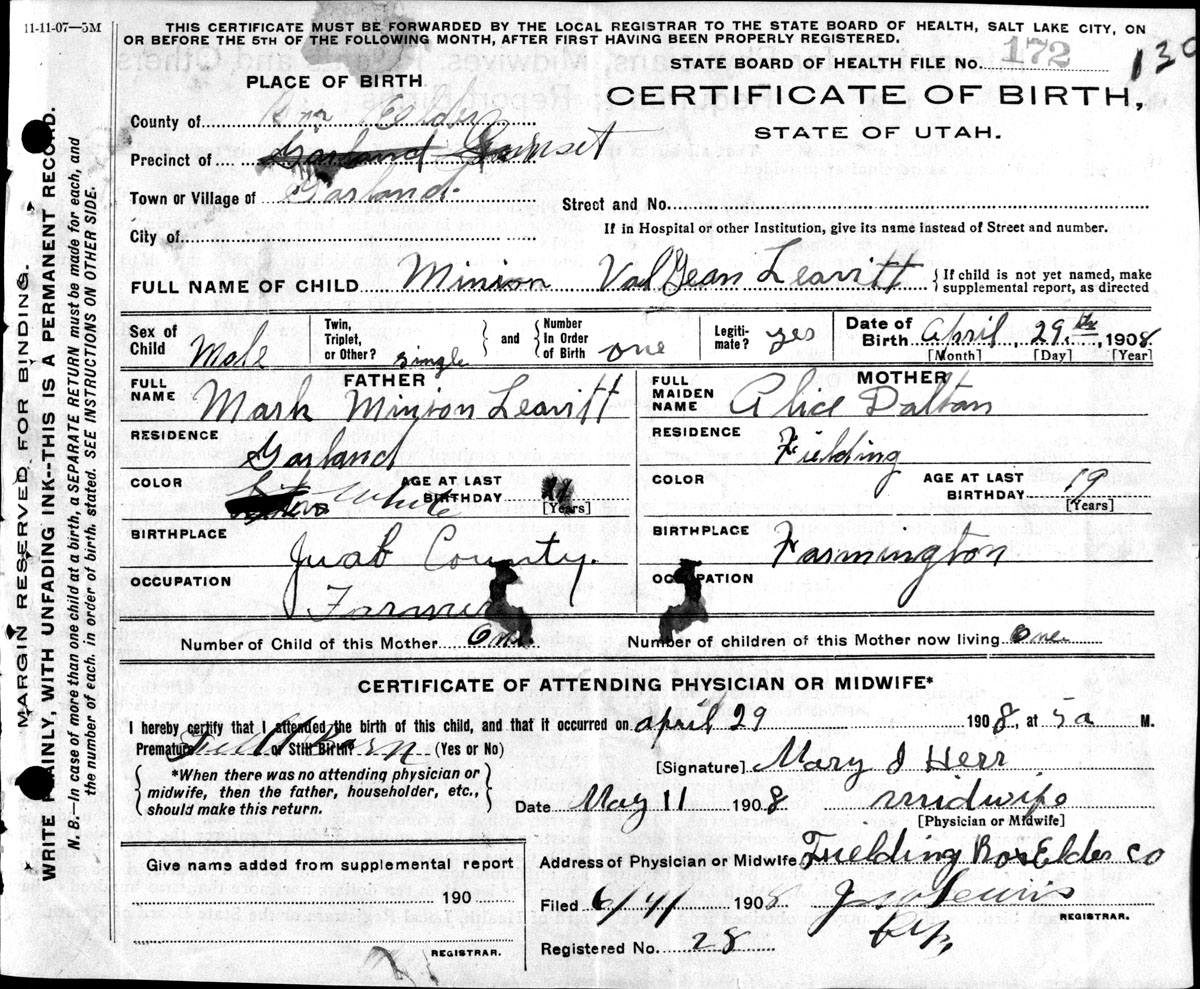 11-11-07—5M
THIS CERTIFICATE MUST BE FORWARDED BY THE LOCAL REGISTRAR TO THE STATE BOARD OF HEALTH, SALT LAKE CITY, ON
OR BEFORE THE 5TH OF THE FOLLOWING MONTH, AFTER FIRST HAVING BEEN PROPERLY REGISTERED.
STATE BOARD OF HEALTH FILE No. 172
PLACE OF BIRTH
CERTIFICATE OF BIRTH,
STATE OF UTAH.
County of Box Elder
Precinct of Garland
Town or Village of Garland.
Street and No.
City of
If in Hospital or other Institution, give its name instead of Street and number.
FULL NAME OF CHILD Minion ValJean Leavitt { If child is not yet named, make supplemental report, as directed
Sex of Child Male
Twin, Triplet, or Other? single } and { Number In Order of Birth one
Legitimate? yes
Date of Birth April, 29th, 1908
[Month] [Day] [Year]
FATHER
FULL NAME Mark Minion Leavitt
MOTHER
FULL MAIDEN NAME Alice Dalton
RESIDENCE Garland
RESIDENCE Fielding
COLOR White AGE AT LAST BIRTHDAY
[Years]
COLOR AGE AT LAST BIRTHDAY 19
[Years]
BIRTHPLACE Juab County.
BIRTHPLACE Farmington
OCCUPATION Farmer
OCCUPATION
Number of Child of this Mother One
Number of children of this Mother now living One
CERTIFICATE OF ATTENDING PHYSICIAN OR MIDWIFE*
I hereby certify that I attended the birth of this child, and that it occurred on April 29 1908, at 5 a M.
Premature or Still Birth? (Yes or No)
[Signature] Mary J Herr
{ *When there was no attending physician or
midwife, then the father, householder, etc.,
should make this return. }
Date May 11 1908 midwife
[Physician or Midwife]
Give name added from supplemental report
190
REGISTRAR.
Address of Physician or Midwife Fielding Box Elder Co
Filed 6/4/ 1908
REGISTRAR.
Registered No. 28
MARGIN RESERVED FOR BINDING.
WRITE PLAINLY, WITH UNFADING INK--THIS IS A PERMANENT RECORD.
N. B.—In case of more than one child at a birth, a SEPARATE RETURN must be made for each, and
the number of each, in order of birth, stated. SEE INSTRUCTIONS ON OTHER SIDE.